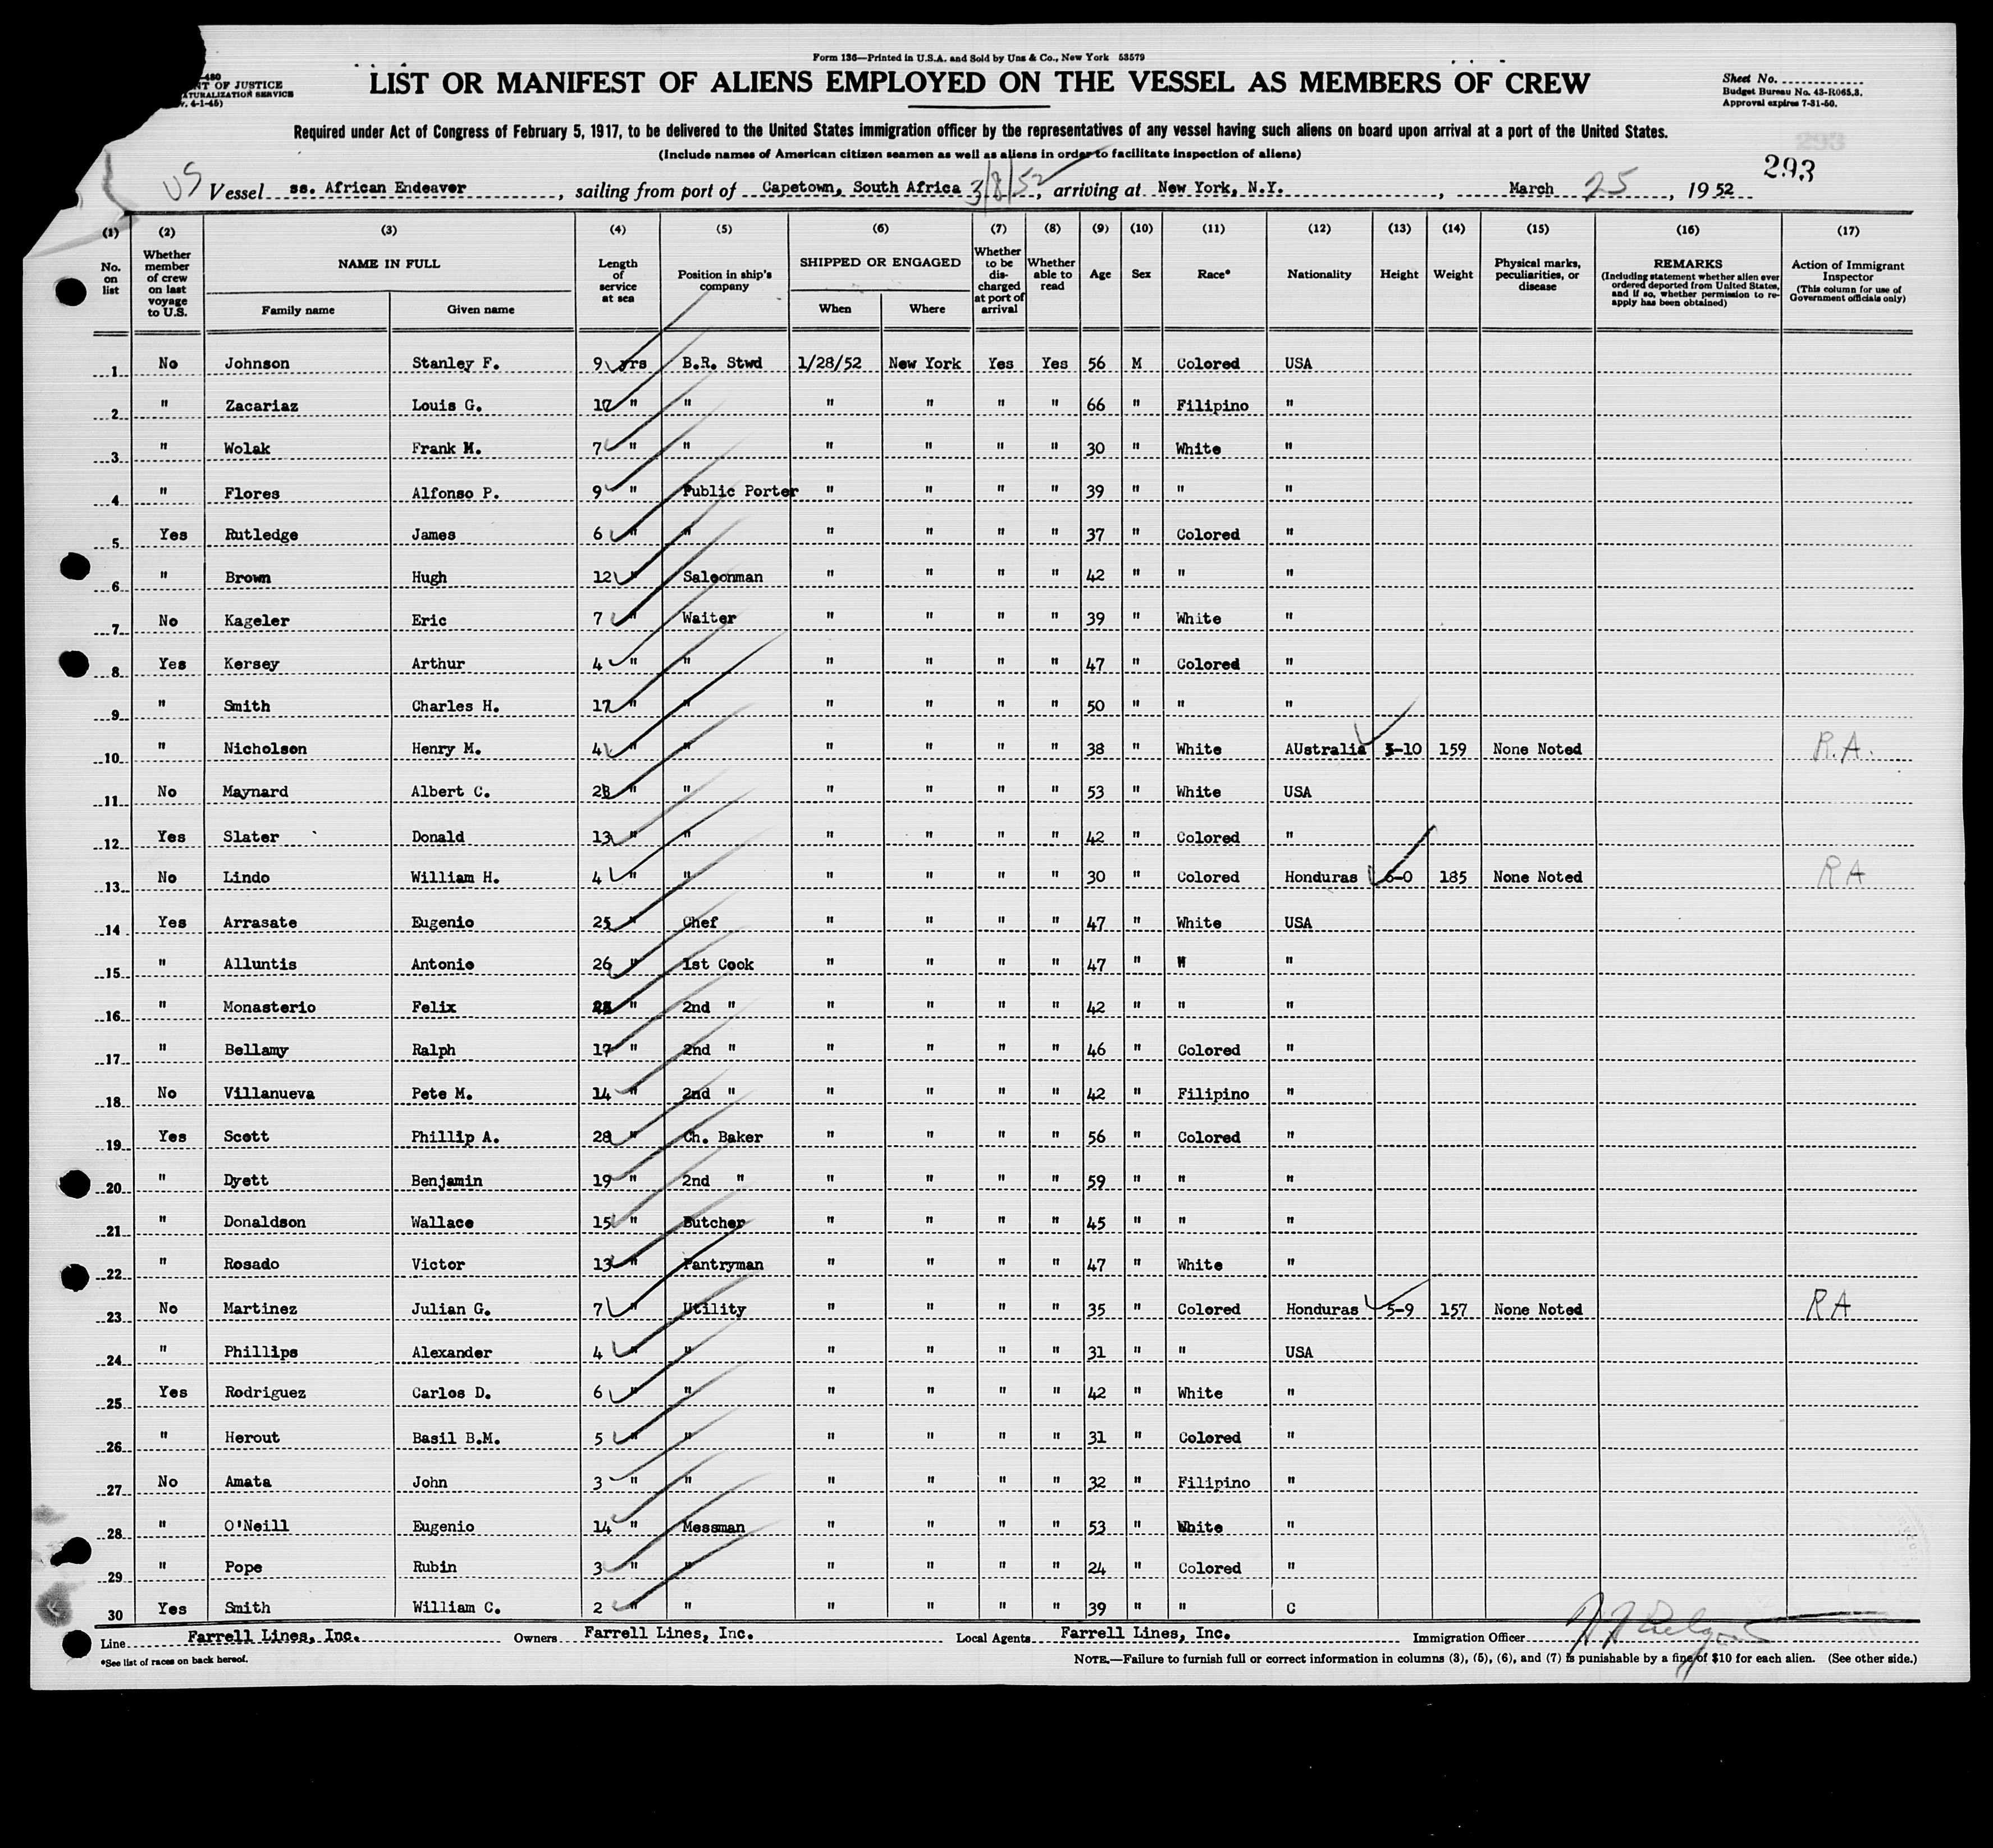 Form 136—Printed in U.S.A. and Sold by Unz & Co., New York 53579
-480
NT OF JUSTICE
ATURALIZATION SERVICE
4-1-45)
LIST OR MANIFEST OF ALIENS EMPLOYED ON THE VESSEL AS MEMBERS OF CREW
Sheet No.
Budget Bureau No. 43-R065.3.
Approval expires 7-31-50.
Required under Act of Congress of February 5, 1917, to be delivered to the United States immigration officer by the representatives of any vessel having such aliens on board upon arrival at a port of the United States.
(Include names of American citizen seamen as well as aliens in order to facilitate inspection of aliens)
293
US Vessel ss. African Endeavor, sailing from port of Capetown, South Africa 3/8/52, arriving at New York, N.Y., March 25, 1952
(1) (2) (3) (4) (5) (6) (7) (8) (9) (10) (11) (12) (13) (14) (15) (16) (17)
No. on list
Whether member of crew on last voyage to U.S.
NAME IN FULL
Family name Given name
Length of service at sea
Position in ship's company
SHIPPED OR ENGAGED
When Where
Whether to be discharged at port of arrival
Whether able to read
Age Sex Race* Nationality Height Weight
Physical marks, peculiarities, or disease
REMARKS
(Including statement whether alien ever ordered deported from United States, and if so, whether permission to reapply has been obtained)
Action of Immigrant Inspector
(This column for use of Government officials only)
1 No Johnson Stanley F. 9 yrs B.R. Stwd 1/28/52 New York Yes Yes 56 M Colored USA
2 " Zacariaz Louis G. 17 " " " " " " 66 " Filipino "
3 " Wolak Frank M. 7 " " " " " " 30 " White "
4 " Flores Alfonso P. 9 " Public Porter " " " " 39 " " "
5 Yes Rutledge James 6 " " " " " " 37 " Colored "
6 " Brown Hugh 12 " Saloonman " " " " 42 " " "
7 No Kageler Eric 7 " Waiter " " " " 39 " White "
8 Yes Kersey Arthur 4 " " " " " " 47 " Colored "
9 " Smith Charles H. 17 " " " " " " 50 " " "
10 " Nicholson Henry M. 4 " " " " " " 38 " White AUstralia 5-10 159 None Noted R.A.
11 No Maynard Albert C. 28 " " " " " " 53 " White USA
12 Yes Slater Donald 13 " " " " " " 42 " Colored "
13 No Lindo William H. 4 " " " " " " 30 " Colored Honduras 6-0 185 None Noted RA
14 Yes Arrasate Eugenio 25 " Chef " " " " 47 " White USA
15 " Alluntis Antonio 26 " 1st Cook " " " " 47 " " "
16 " Monasterio Felix " 2nd " " " " " 42 " " "
17 " Bellamy Ralph 17 " 2nd " " " " " 46 " Colored "
18 No Villanueva Pete M. 14 " 2nd " " " " " 42 " Filipino "
19 Yes Scott Phillip A. 28 " Ch. Baker " " " " 56 " Colored "
20 " Dyett Benjamin 19 " 2nd " " " " " 59 " " "
21 " Donaldson Wallace 15 " Butcher " " " " 45 " " "
22 " Rosado Victor 13 " Pantryman " " " " 47 " White "
23 No Martinez Julian G. 7 " Utility " " " " 35 " Colored Honduras 5-9 157 None Noted RA
24 " Phillips Alexander 4 " " " " " " 31 " " USA
25 Yes Rodriguez Carlos D. 6 " " " " " " 42 " White "
26 " Herout Basil B.M. 5 " " " " " " 31 " Colored "
27 No Amata John 3 " " " " " " 32 " Filipino "
28 " O'Neill Eugenio 14 " Messman " " " " 53 " White "
29 " Pope Rubin 3 " " " " " " 24 " Colored "
30 Yes Smith William C. 2 " " " " " " 39 " " C
Line Farrell Lines, Inc. Owners Farrell Lines, Inc. Local Agents Farrell Lines, Inc. Immigration Officer
*See list of races on back hereof.
NOTE.—Failure to furnish full or correct information in columns (3), (5), (6), and (7) is punishable by a fine of $10 for each alien. (See other side.)